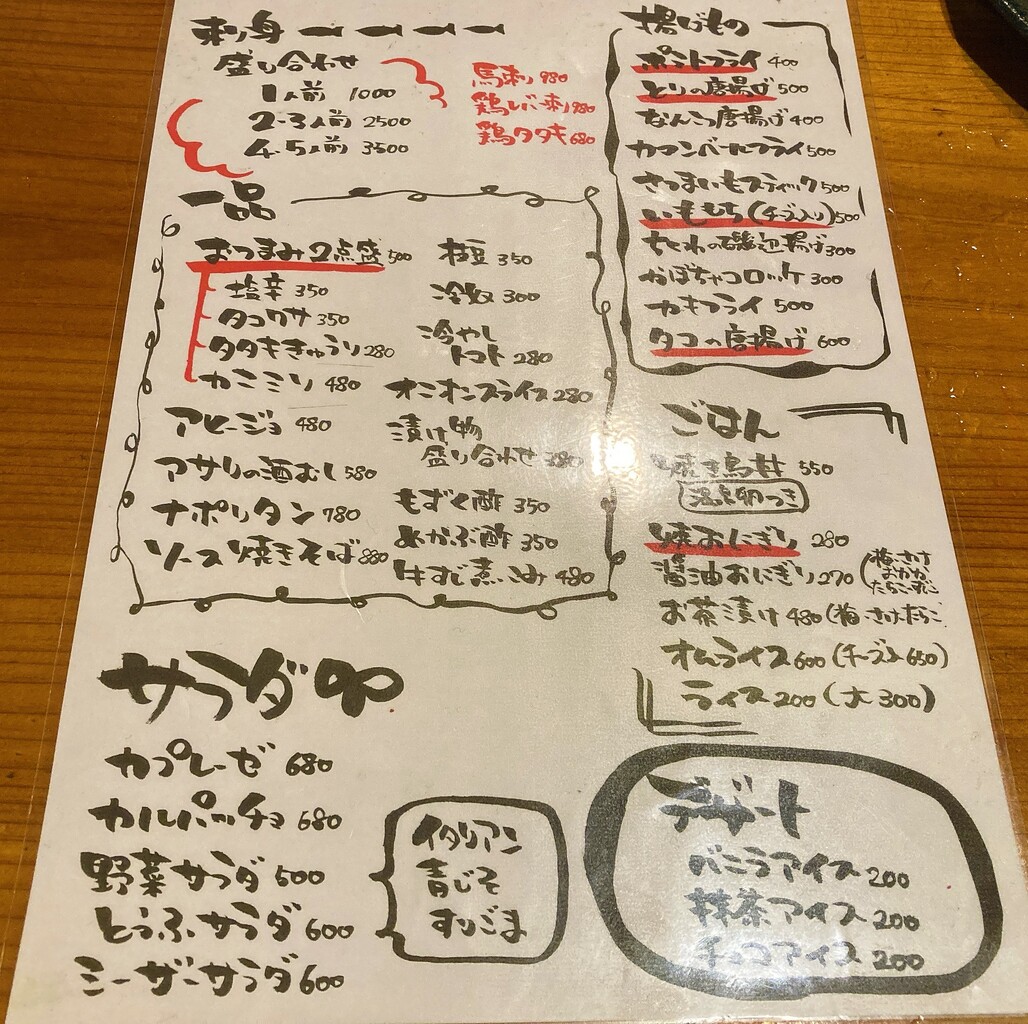 刺身
盛り合わせ
1人前 1000
2・3人前 2500
4・5人前 3500
馬刺 980
鶏レバー刺 980
鶏タタキ 680
一品
おつまみ2点盛 500
塩辛 350
タコワサ 350
タタキきゅうり 280
カニミソ 480
アヒージョ 480
アサリの酒むし 580
ナポリタン 780
ソース焼きそば 880
枝豆 350
冷奴 300
冷やし
トマト 280
オニオンスライス 280
漬け物
盛り合わせ 380
もずく酢 350
めかぶ酢 350
牛すじ煮こみ 480
サラダ
カプレーゼ 680
カルパッチョ 680
野菜サラダ 500
とうふサラダ 600
シーザーサラダ 600
イタリアン
青じそ
すりごま
揚げもの
ポテトフライ 400
とりの唐揚げ 500
なんこつ唐揚げ 400
カマンベールフライ 500
さつまいもスティック 500
いももち(チーズ入り) 500
ちくわの磯辺揚げ 300
かぼちゃコロッケ 300
カキフライ 500
タコの唐揚げ 600
ごはん
焼き鳥丼 550
温泉卵つき
焼おにぎり 280
醤油おにぎり 270
(梅・さけ
おかか
たらこ
お茶漬け 480(梅・さけ・たらこ
オムライス 600(チーズ入 650)
ライス 200(大 300)
デザート
バニラアイス 200
抹茶アイス 200
チョコアイス 200